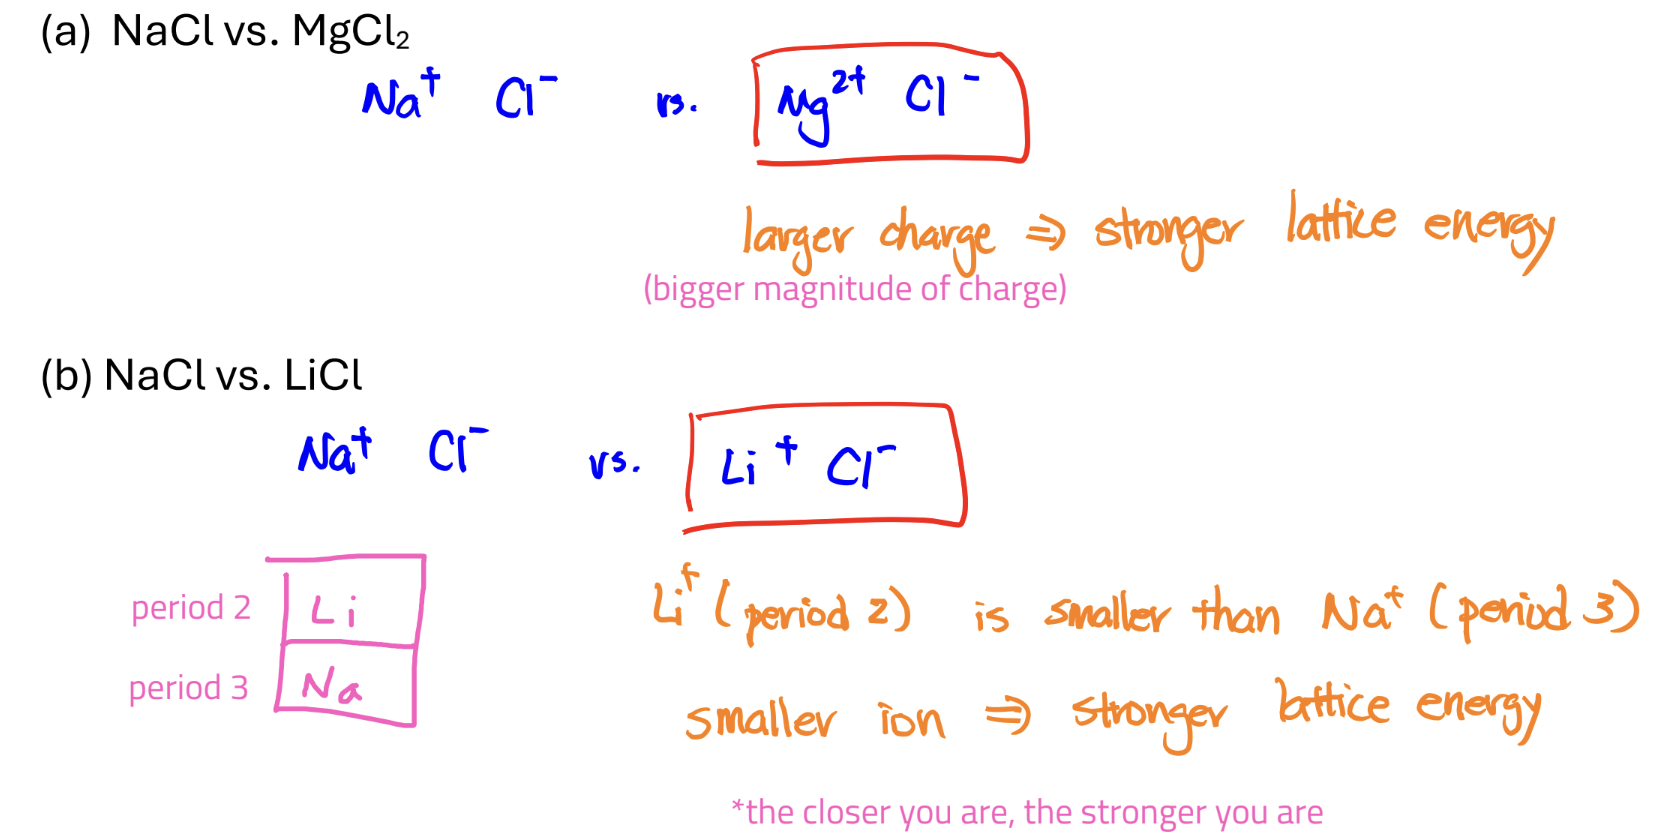 (a) NaCl vs. MgCl₂
Na⁺ Cl⁻ vs. Mg²⁺ Cl⁻
larger charge ⇒ stronger lattice energy
(bigger magnitude of charge)
(b) NaCl vs. LiCl
Na⁺ Cl⁻ vs. Li⁺ Cl⁻
period 2 Li
period 3 Na
Li⁺ (period 2) is smaller than Na⁺ (period 3)
smaller ion ⇒ stronger lattice energy
*the closer you are, the stronger you are